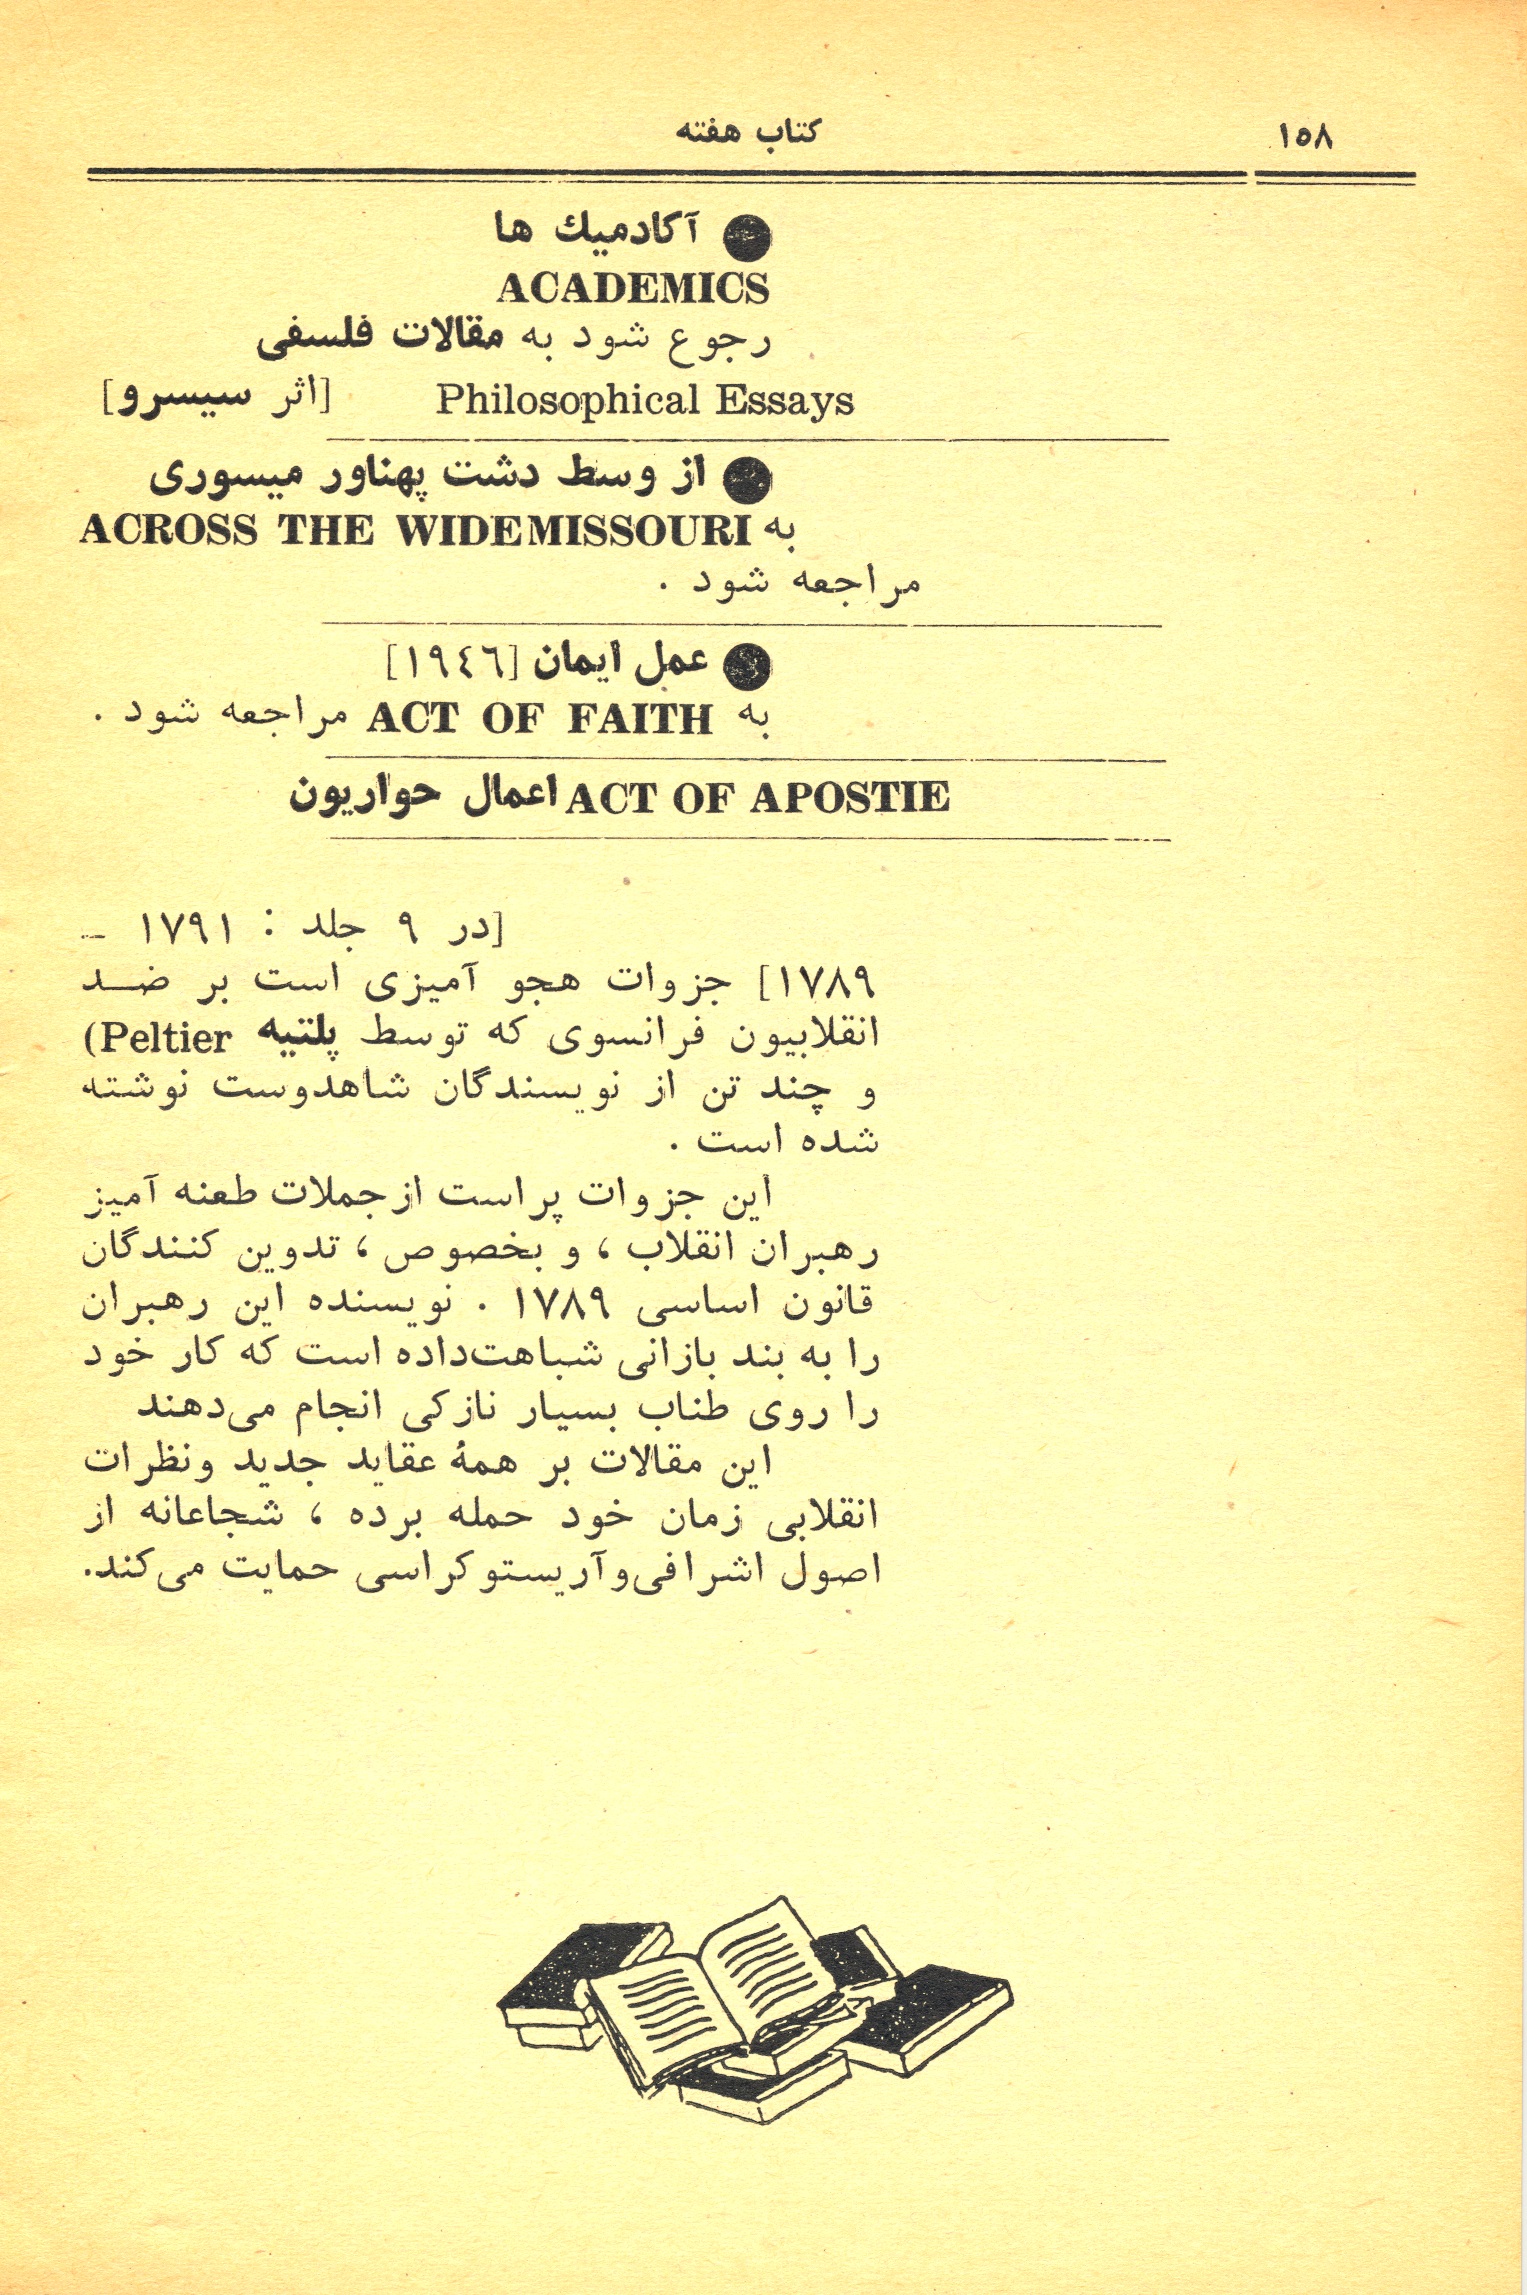 ۱۵۸
کتاب هفته
● آکادمیك ها
ACADEMICS
رجوع شود به مقالات فلسفی
Philosophical Essays [اثر سیسرو]
● از وسط دشت پهناور میسوری
به ACROSS THE WIDEMISSOURI
مراجعه شود .
● عمل ایمان [۱۹٤٦]
به ACT OF FAITH مراجعه شود .
ACT OF APOSTIE اعمال حواریون
[در ۹ جلد : ۱۷۹۱ –
۱۷۸۹] جزوات هجو آمیزی است بر ضد
انقلابیون فرانسوی که توسط پلتیه Peltier)
و چند تن از نویسندگان شاهدوست نوشته
شده است .
این جزوات پراست ازجملات طعنه آمیز
رهبران انقلاب ، و بخصوص ، تدوین کنندگان
قانون اساسی ۱۷۸۹ . نویسنده این رهبران
را به بند بازانی شباهت‌داده است که کار خود
را روی طناب بسیار نازکی انجام می‌دهند
این مقالات بر همهٔ عقاید جدید ونظرات
انقلابی زمان خود حمله برده ، شجاعانه از
اصول اشرافی‌وآریستوکراسی حمایت می‌کند.